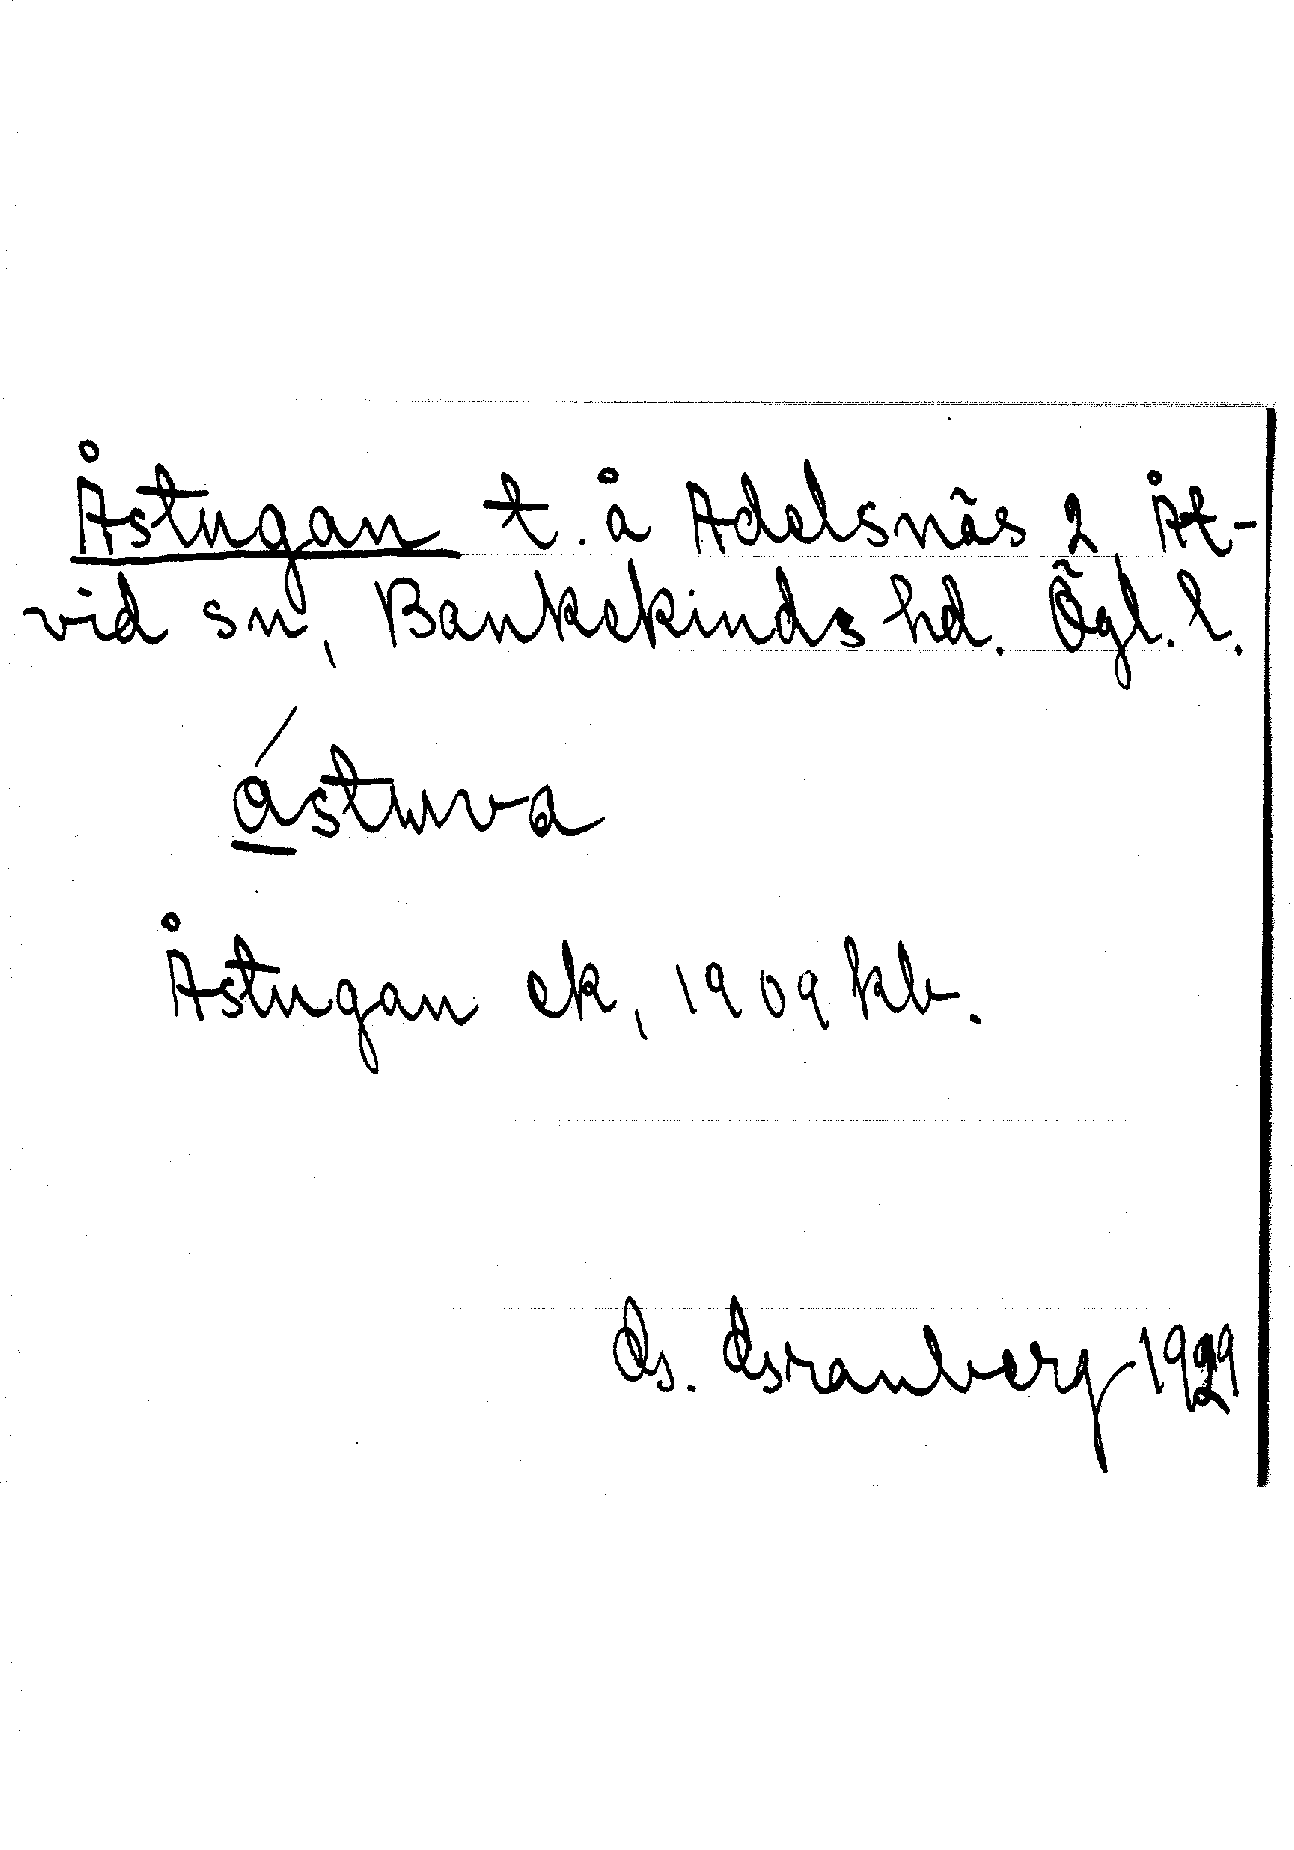 Åstugan t. å Adelsnäs 2, Åt-
vid sn, Bankekinds hd. Ögl. l.
ástuva
Åstugan ek, 1909 kb.
G. Granberg 1929